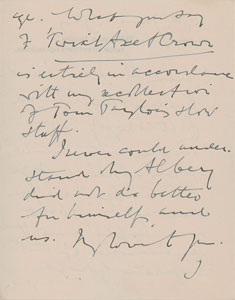 ge. What you say
of 'Twixt Axe & Crown
is entirely in accordance
with my recollection
of Tom Taylor's slow
stuff.
I never could under-
stand why Albery
did not do better
for himself, and
us. My love to you.